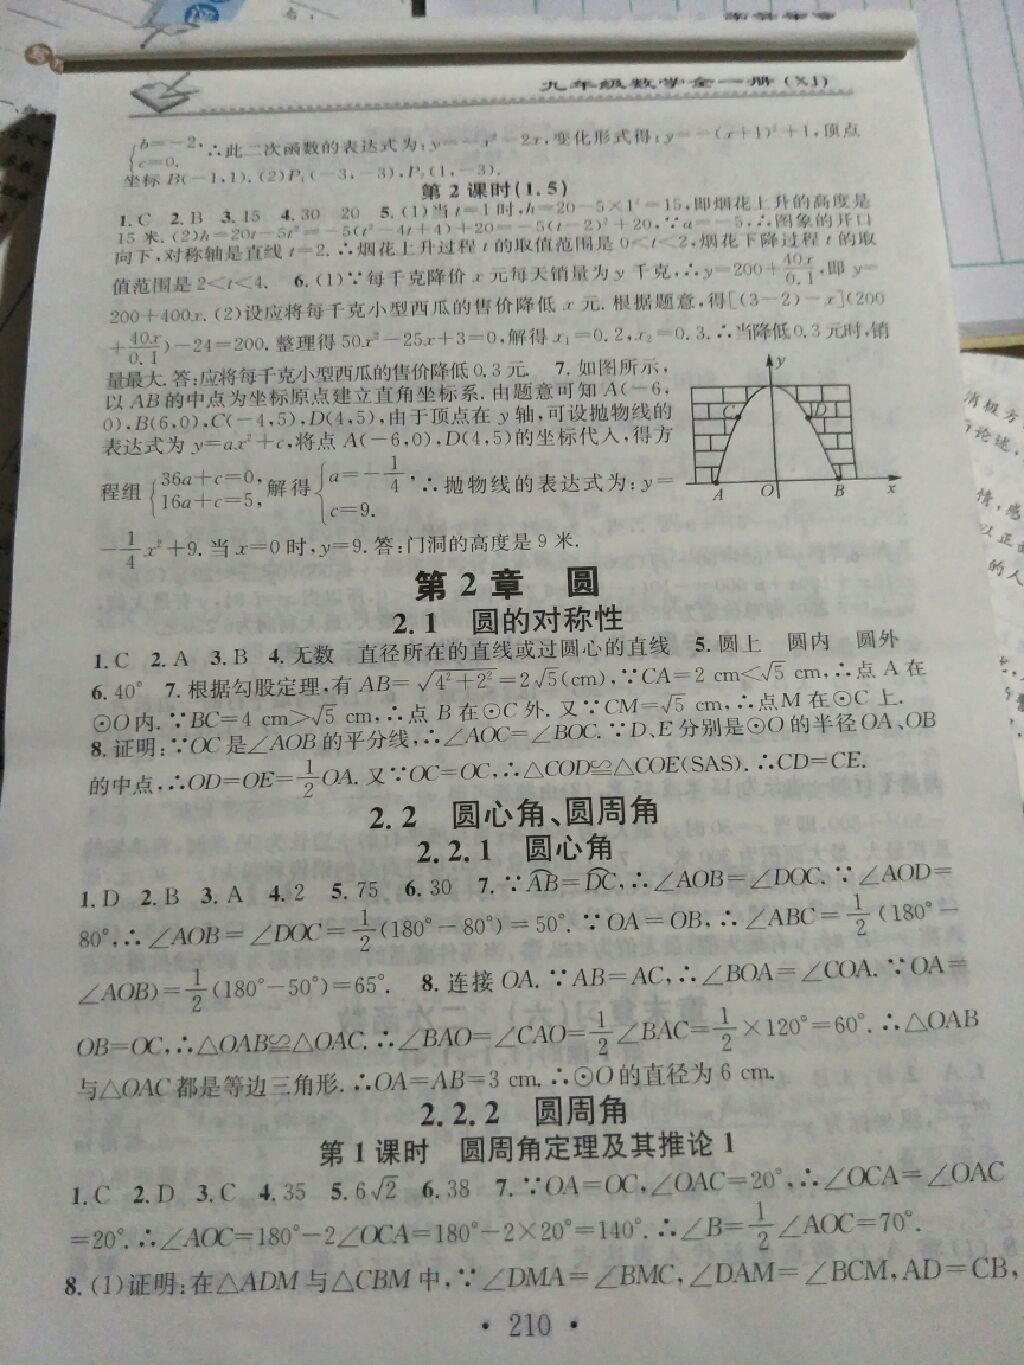 九年级数学全一册(XJ)
{b=-2, c=0. ∴此二次函数的表达式为:y=-x²-2x,变化形式得:y=-(x+1)²+1,顶点
坐标B(-1,1). (2)P₁(-3,-3),P₂(1,-3).
第2课时(1.5)
1.C 2.B 3.15 4.30 20 5.(1)当t=1时,h=20-5×1²=15,即烟花上升的高度是
15米.(2)h=20t-5t²=-5(t²-4t+4)+20=-5(t-2)²+20,∵a=-5,∴图象的开口
向下,对称轴是直线t=2.∴烟花上升过程t的取值范围是0<t<2,烟花下降过程t的取
值范围是2<t<4. 6.(1)∵每千克降价x元每天销量为y千克,∴y=200+40x/0.1,即y=
200+400x.(2)设应将每千克小型西瓜的售价降低x元.根据题意,得[(3-2)-x](200
+40x/0.1)-24=200.整理得50x²-25x+3=0,解得x₁=0.2,x₂=0.3.∴当降低0.3元时,销
量最大.答:应将每千克小型西瓜的售价降低0.3元. 7.如图所示,
以AB的中点为坐标原点建立直角坐标系.由题意可知A(-6,
0),B(6,0),C(-4,5),D(4,5),由于顶点在y轴,可设抛物线的
表达式为y=ax²+c,将点A(-6,0),D(4,5)的坐标代入,得方
程组{36a+c=0, 16a+c=5, 解得{a=-1/4, c=9. ∴抛物线的表达式为:y=
-1/4x²+9.当x=0时,y=9.答:门洞的高度是9米.
y
C D
A O B x
第2章 圆
2.1 圆的对称性
1.C 2.A 3.B 4.无数 直径所在的直线或过圆心的直线 5.圆上 圆内 圆外
6.40° 7.根据勾股定理,有AB=√(4²+2²)=2√5(cm),∵CA=2 cm<√5 cm,∴点A在
⊙O内.∵BC=4 cm>√5 cm,∴点B在⊙C外.又∵CM=√5 cm,∴点M在⊙C上.
8.证明:∵OC是∠AOB的平分线,∴∠AOC=∠BOC.∵D、E分别是⊙O的半径OA、OB
的中点,∴OD=OE=1/2OA.又∵OC=OC,∴△COD≌△COE(SAS).∴CD=CE.
2.2 圆心角、圆周角
2.2.1 圆心角
1.D 2.B 3.A 4.2 5.75 6.30 7.∵A͡B=D͡C,∴∠AOB=∠DOC.∵∠AOD=
80°,∴∠AOB=∠DOC=1/2(180°-80°)=50°.∵OA=OB,∴∠ABC=1/2(180°-
∠AOB)=1/2(180°-50°)=65°. 8.连接OA.∵AB=AC,∴∠BOA=∠COA.∵OA=
OB=OC,∴△OAB≌△OAC.∴∠BAO=∠CAO=1/2∠BAC=1/2×120°=60°.∴△OAB
与△OAC都是等边三角形.∴OA=AB=3 cm.∴⊙O的直径为6 cm.
2.2.2 圆周角
第1课时 圆周角定理及其推论1
1.C 2.D 3.C 4.35 5.6√2 6.38 7.∵OA=OC,∠OAC=20°,∴∠OCA=∠OAC
=20°.∴∠AOC=180°-2∠OCA=180°-2×20°=140°.∴∠B=1/2∠AOC=70°.
8.(1)证明:在△ADM与△CBM中,∵∠DMA=∠BMC,∠DAM=∠BCM,AD=CB,
• 210 •